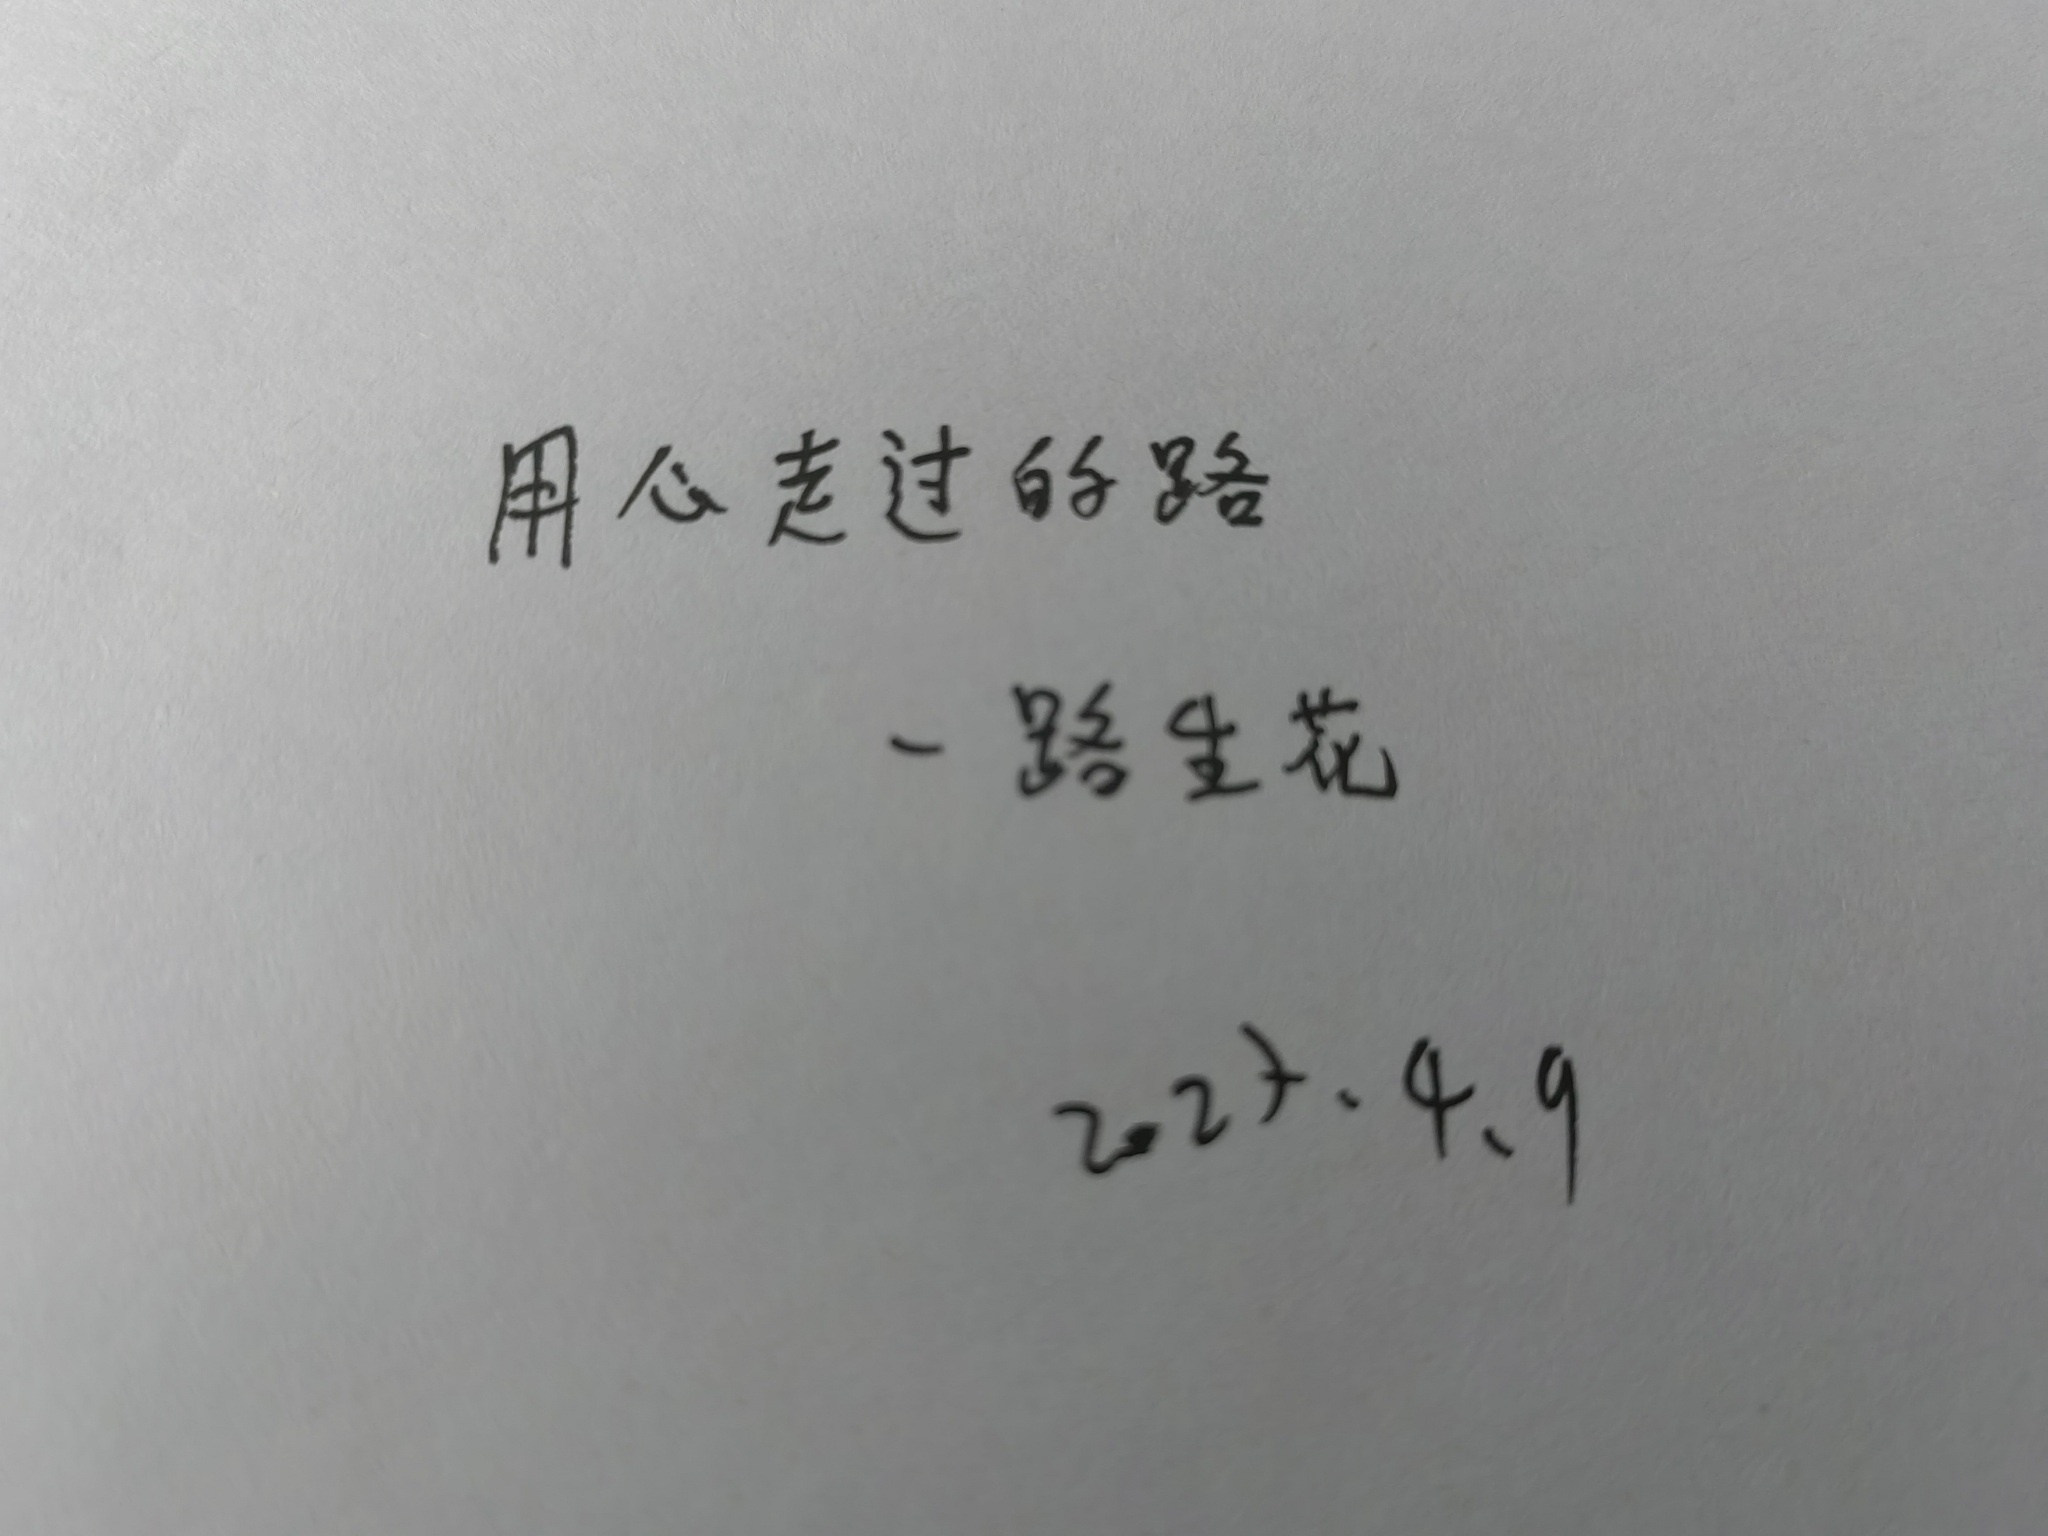 用心走过的路
一路生花
2027.4.9